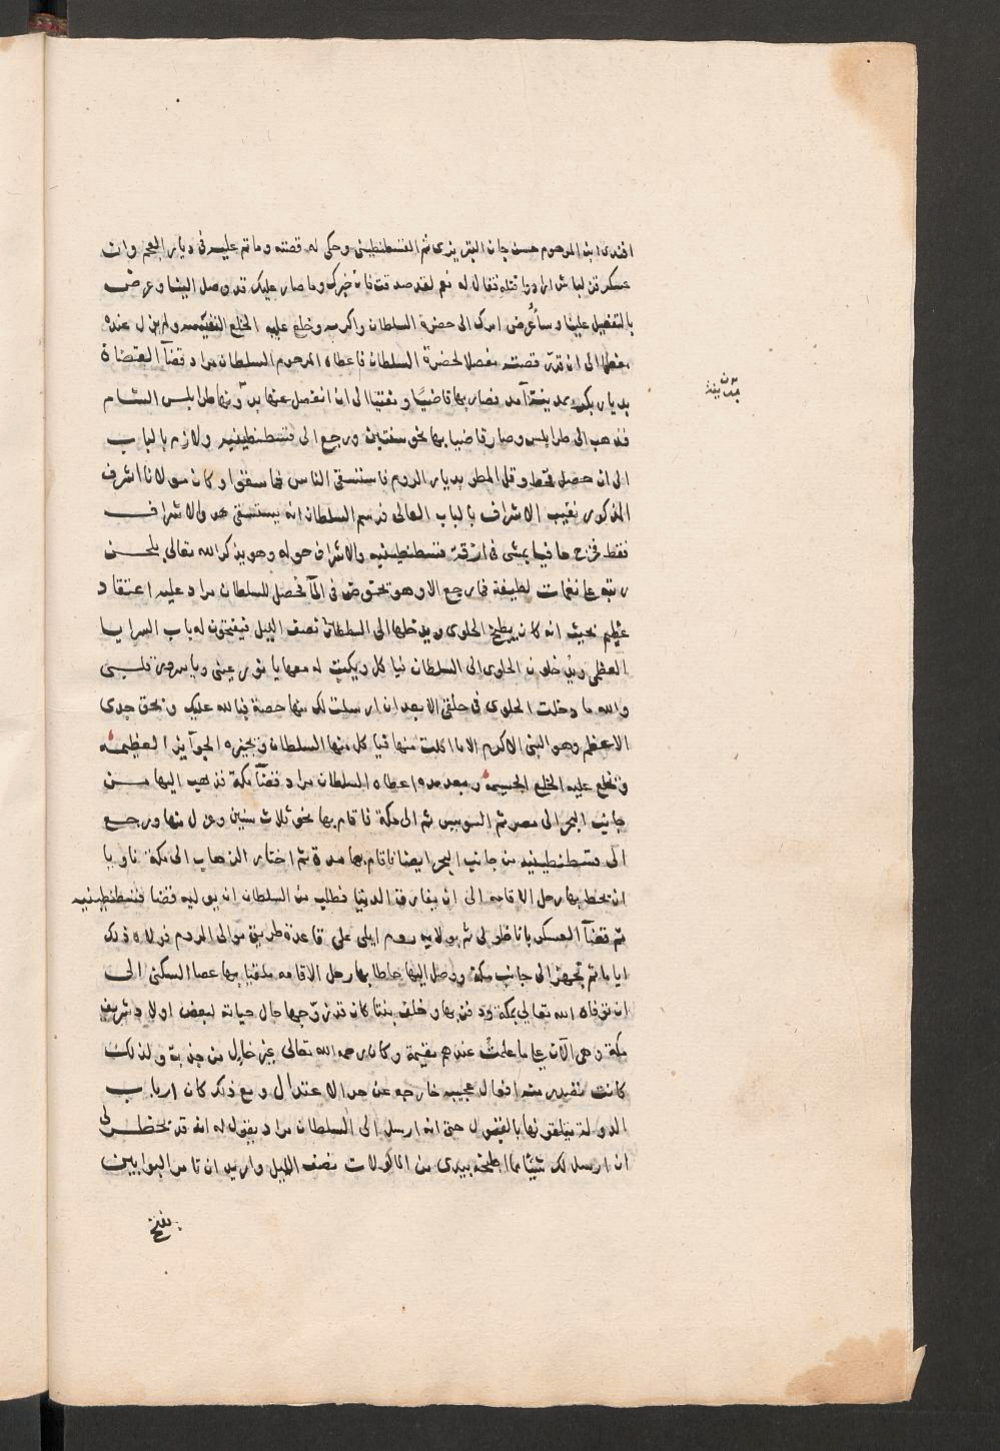 افندى ابن المرحوم حسن جان التبريزى ثم القسطنطينى وحكى له قصته وما تم عليه فى ديار العجم وان
عسكر قزلباش ارادوا قتله فقال له نعم لقد صدقت فان خبرك وما صار عليك قد وصل الينا وعرض
بالتفصيل علينا وسأعرض امرك الى حضرة السلطان واكرمه وخلع عليه الخلع النفيسه ولم يزل عنده
معظما الى ان قدّم قصته مفصلا لحضرة السلطان فاعطاه المرحوم السلطان مراد قضآ القضاة
بديار بكر بمدينة آمد فصار بها قاضيًا ومفتيا الى ان انفصل عنها بدّ ونها طرابلس الشام
فذهب الى طرابلس وصار قاضيا بها نحو سنتين ورجع الى قسطنطينيه ولازم بالباب
الى ان حصل قحط وقل المطر بديار الروم فاستسقى الناس فما سقوا وكان مولانا اشرف
المذكور نقيب الاشراف بالباب العالى فرسم السلطان انه يستسقى هو والاشراف
فقط فخرج حافيا يمشى فى ازقة قسطنطينيه والاشراف حوله وهو يذكر الله تعالى بلحن
رتبه على نغمات لطيفة فما رجع الا وهو يخوض فى المآ فحصل للسلطان مراد عليه اعتقاد
عظيم بحيث انه كان يطبخ الحلوى ويدخلها الى السلطان نصف الليل فيفتحون له باب السرايا
العظمى ويدخلون الحلوى الى السلطان فياكل ويكتب له معها يا نور عينى ويا سرور قلبى
والله ما دخلت الحلوى فى حلقى الا بعد ان ارسلت لك منها حصة فبالله عليك وبحق جدى
الاعظم وهو النبى الاكرم الا ما اكلت منها فياكل منها السلطان ويجيزه الجوآيز العظيمه
ويخلع عليه الخلع الجسيمه وبعد مده اعطاه السلطان مراد قضآ مكة فذهب اليها من
جانب البحر الى مصر ثم السويس ثم الى مكة فاقام بها نحو ثلاث سنين وعزل منها ورجع
الى قسطنطينيه من جانب البحر ايضا فاقام بها مدة ثم اختار الذهاب الى مكة ناويا
ان يحط بها رحل الاقامه الى ان يفارق الدنيا فطلب من السلطان ان يوليه قضا قسطنطينيه
ثم قضآ العسكر باناطولى ثم بولاية روم ايلى على قاعدة طريق موالى الروم فولاه ذلك
اياما ثم تجهز الى جانب مكة ووصل اليها حاطا بها رحل الاقامه ملقيا بها عصا السكنى الى
ان توفاه الله تعالى بمكة ودفن بها وخلف بنتا كان قد زوجها حال حياته لبعض اولاد شريف
مكة وهى الآن على ما علمتُ عندهم مقيمة وكان رحمه الله تعالى غير خال من جذبة ولذلك
كانت تصدر منه افعال عجيبه خارجه عن حد الاعتدال ومع ذلك كان ارباب
الدولة يتلقونها بالقبول حتى انه ارسل الى السلطان مراد يقول له انه قد يخطر لى
ان ارسل لك شيئًا مما اطبخه بيدى من الماكولات نصف الليل واريد ان تامر البوابين
بفتح